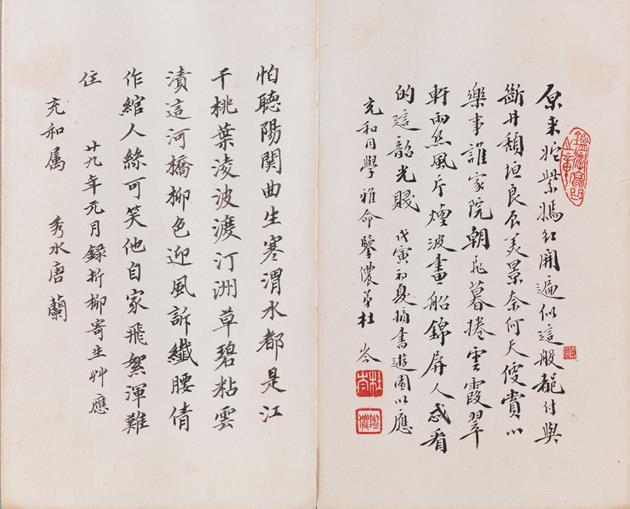 原来姹紫嫣红開遍似這般都付與
斷井頹垣良辰美景奈何天便賞心
樂事誰家院朝飛暮捲雲霞翠
軒雨絲風片煙波畫船錦屏人忒看
的這韶光賤 戊寅初夏摘書遊園以應
充和同學雅命鑒儂弟杜岑
杜岑
怕聽陽關曲生寒渭水都是江
干桃葉淩波渡汀洲草碧粘雲
漬這河橋柳色迎風訴纖腰倩
作綰人絲可笑他自家飛絮渾難
住 廿九年元月錄折柳寄生艸應
充和属 秀水唐蘭